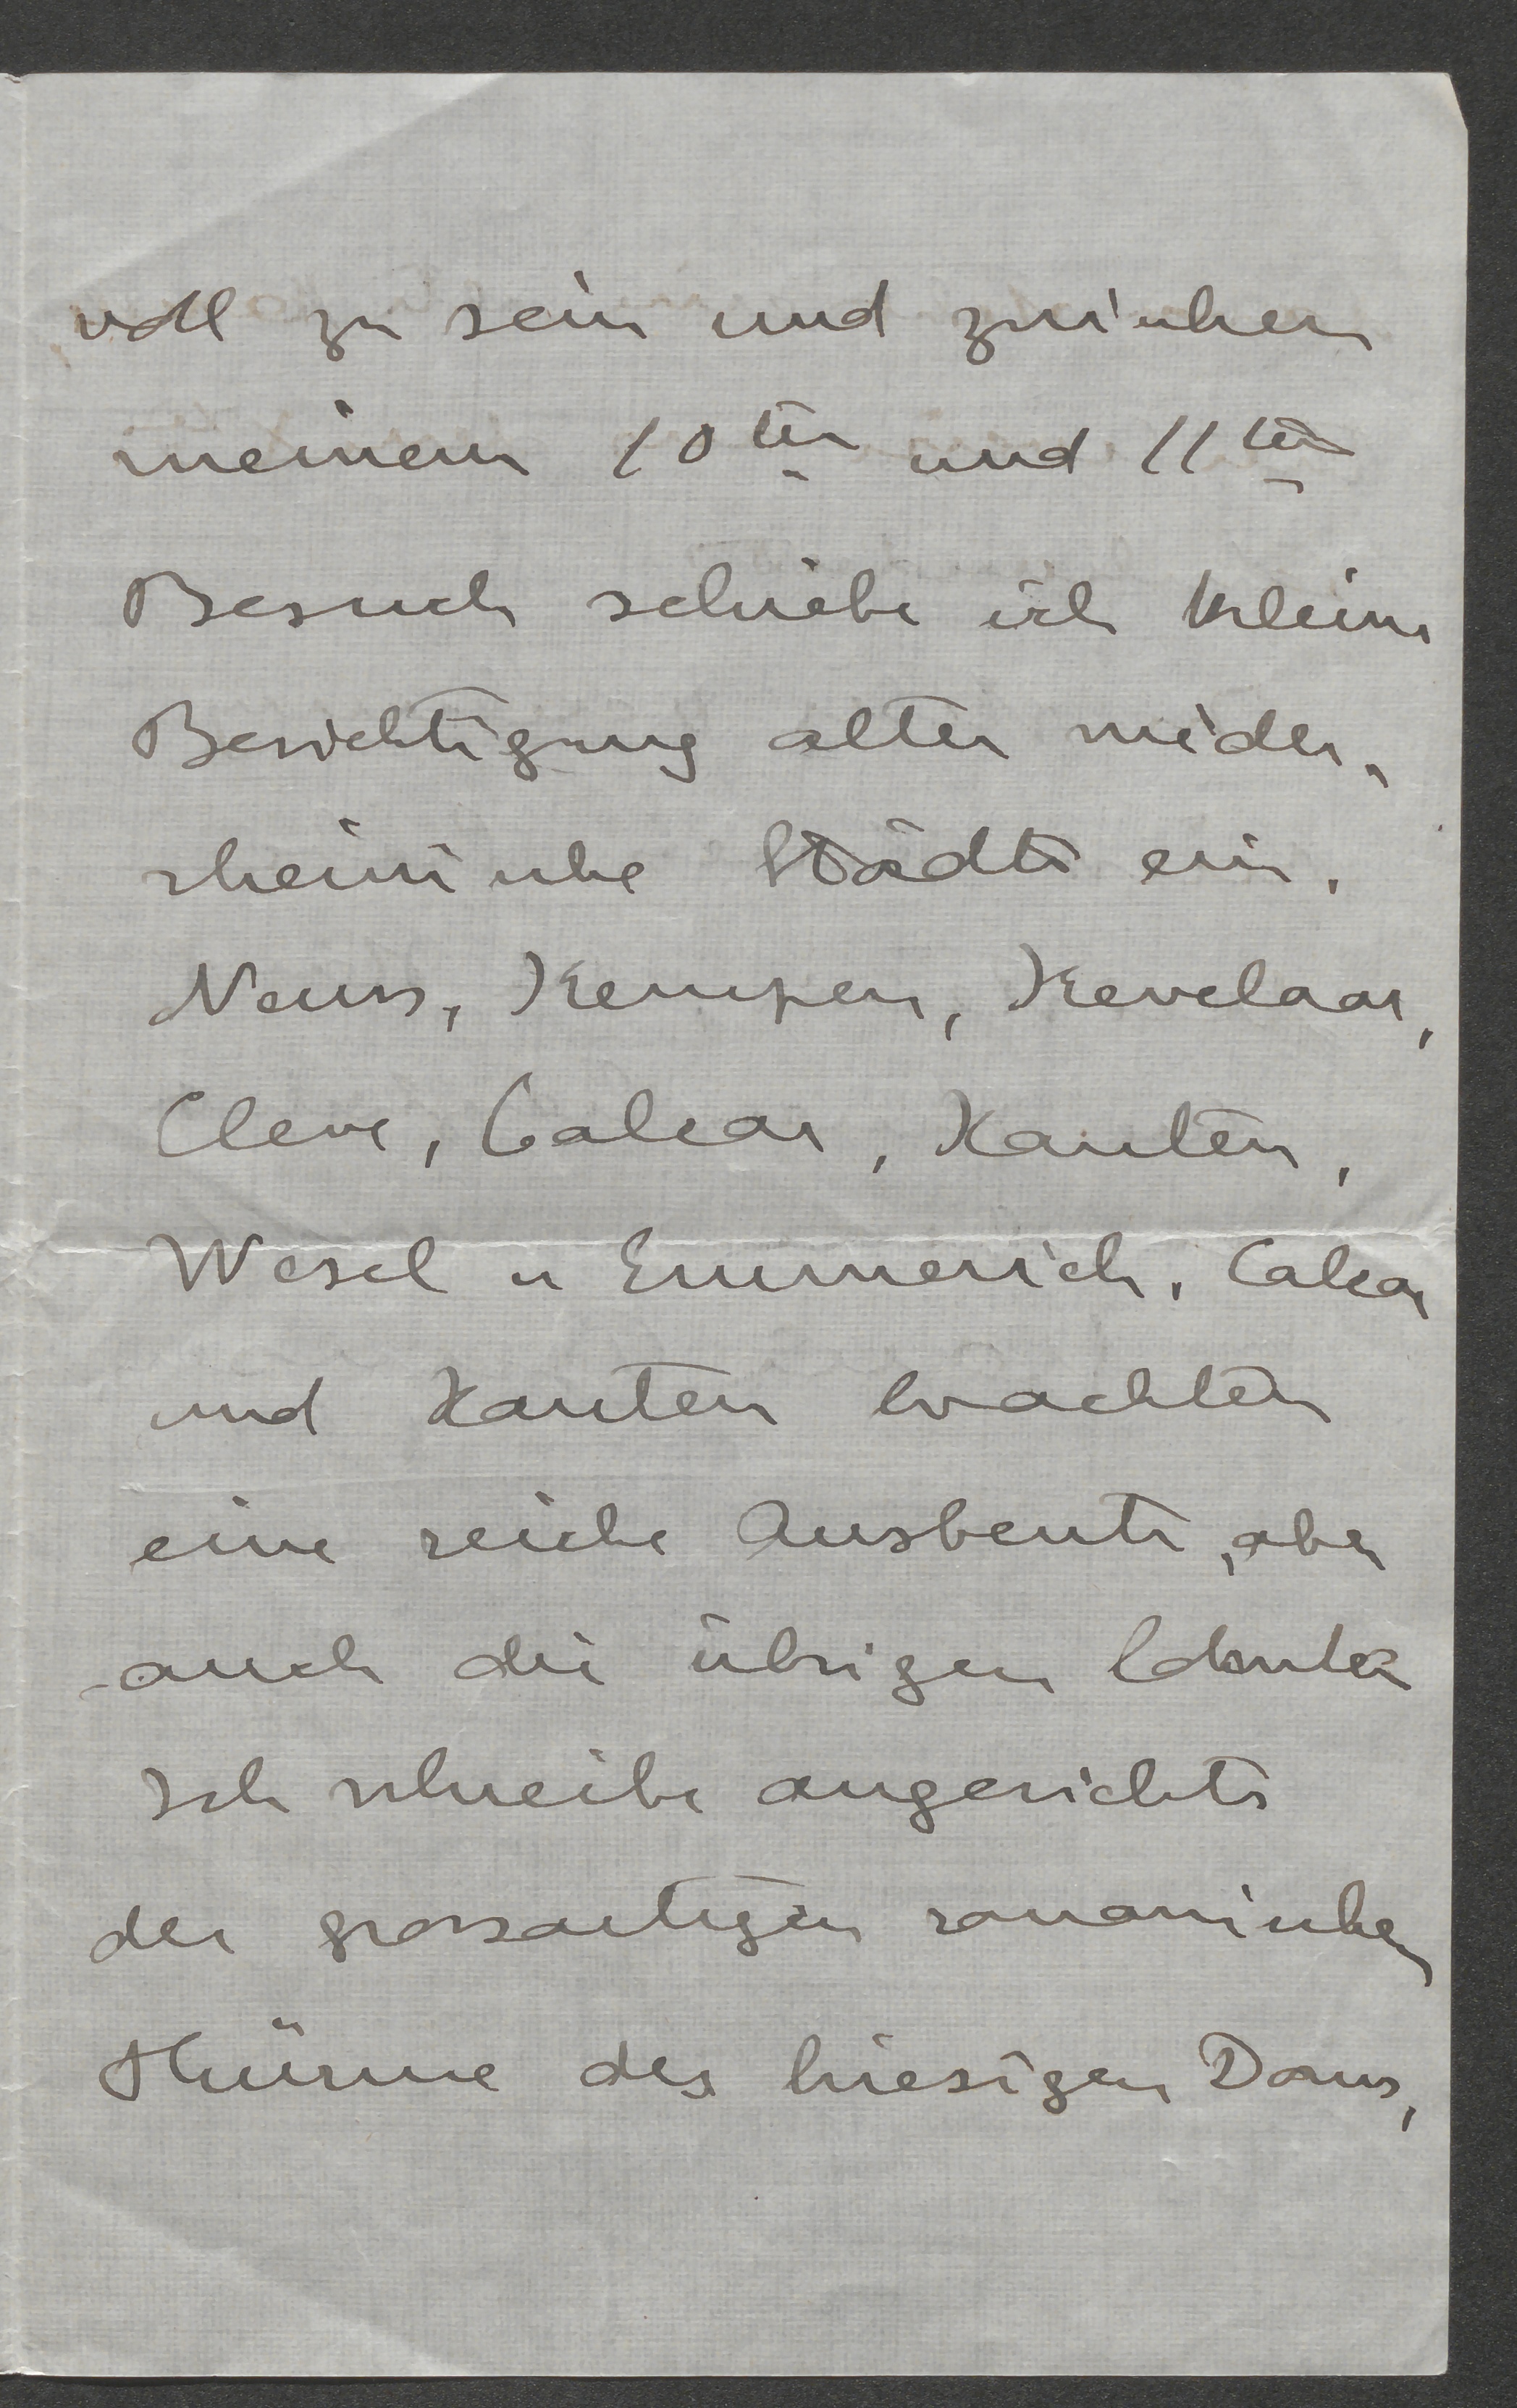 voll zu sein und zwischen
meinem 10ten und 11ten
Besuch schiebe ich kleine
Besichtigung alter nieder-
rheinische Städte ein.
Neuss, Kempen, Kevelaar,
Cleve, Calcar, Xanten,
Wesel u Emmerich. Calcar
und Xanten brachten
eine reiche Ausbeute, aber
auch die übrigen lohnten
Ich schreibe angesichts
der grossartigen romanischen
Thürme des hiesigen Doms,